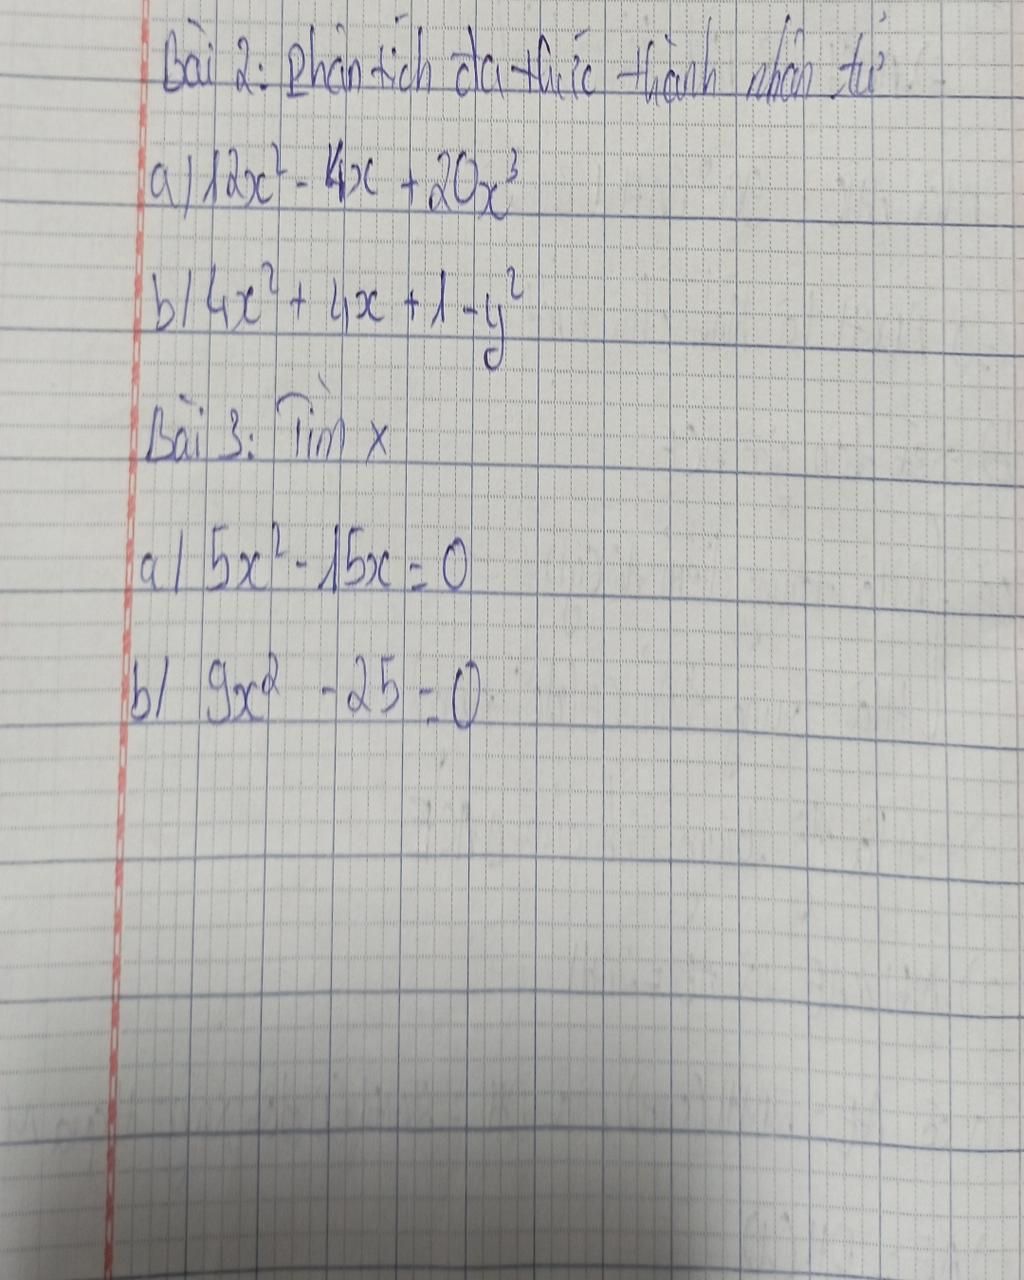 Bài 2: Phân tích đa thức thành nhân tử
a) 12x² - 4x + 20x³
b) 4x² + 4x + 1 - y²
Bài 3: Tìm x
a) 5x² - 15x = 0
b) 9x² - 25 = 0